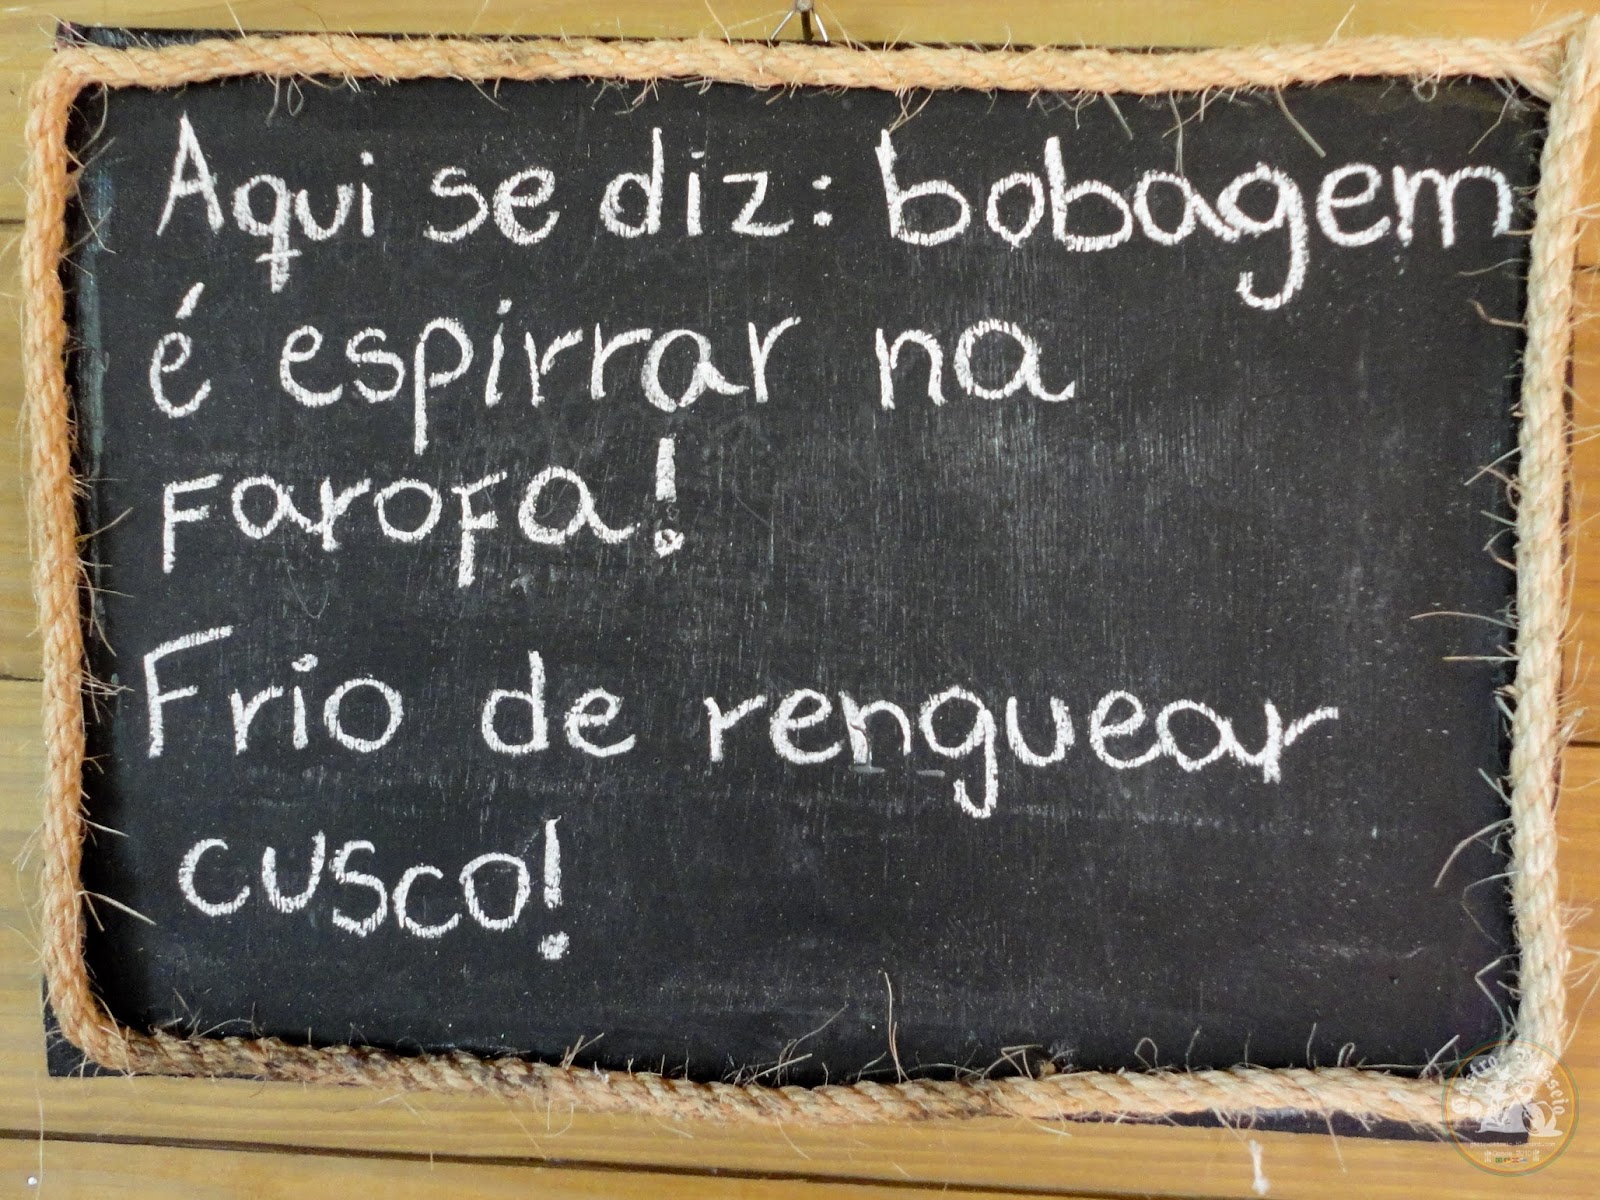 Aqui se diz: bobagem
é espirrar na
farofa!
Frio de renguear
cusco!